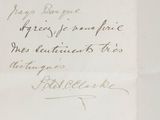 pays Basque
Agréez, je vous prie
mes sentiments très
distingués